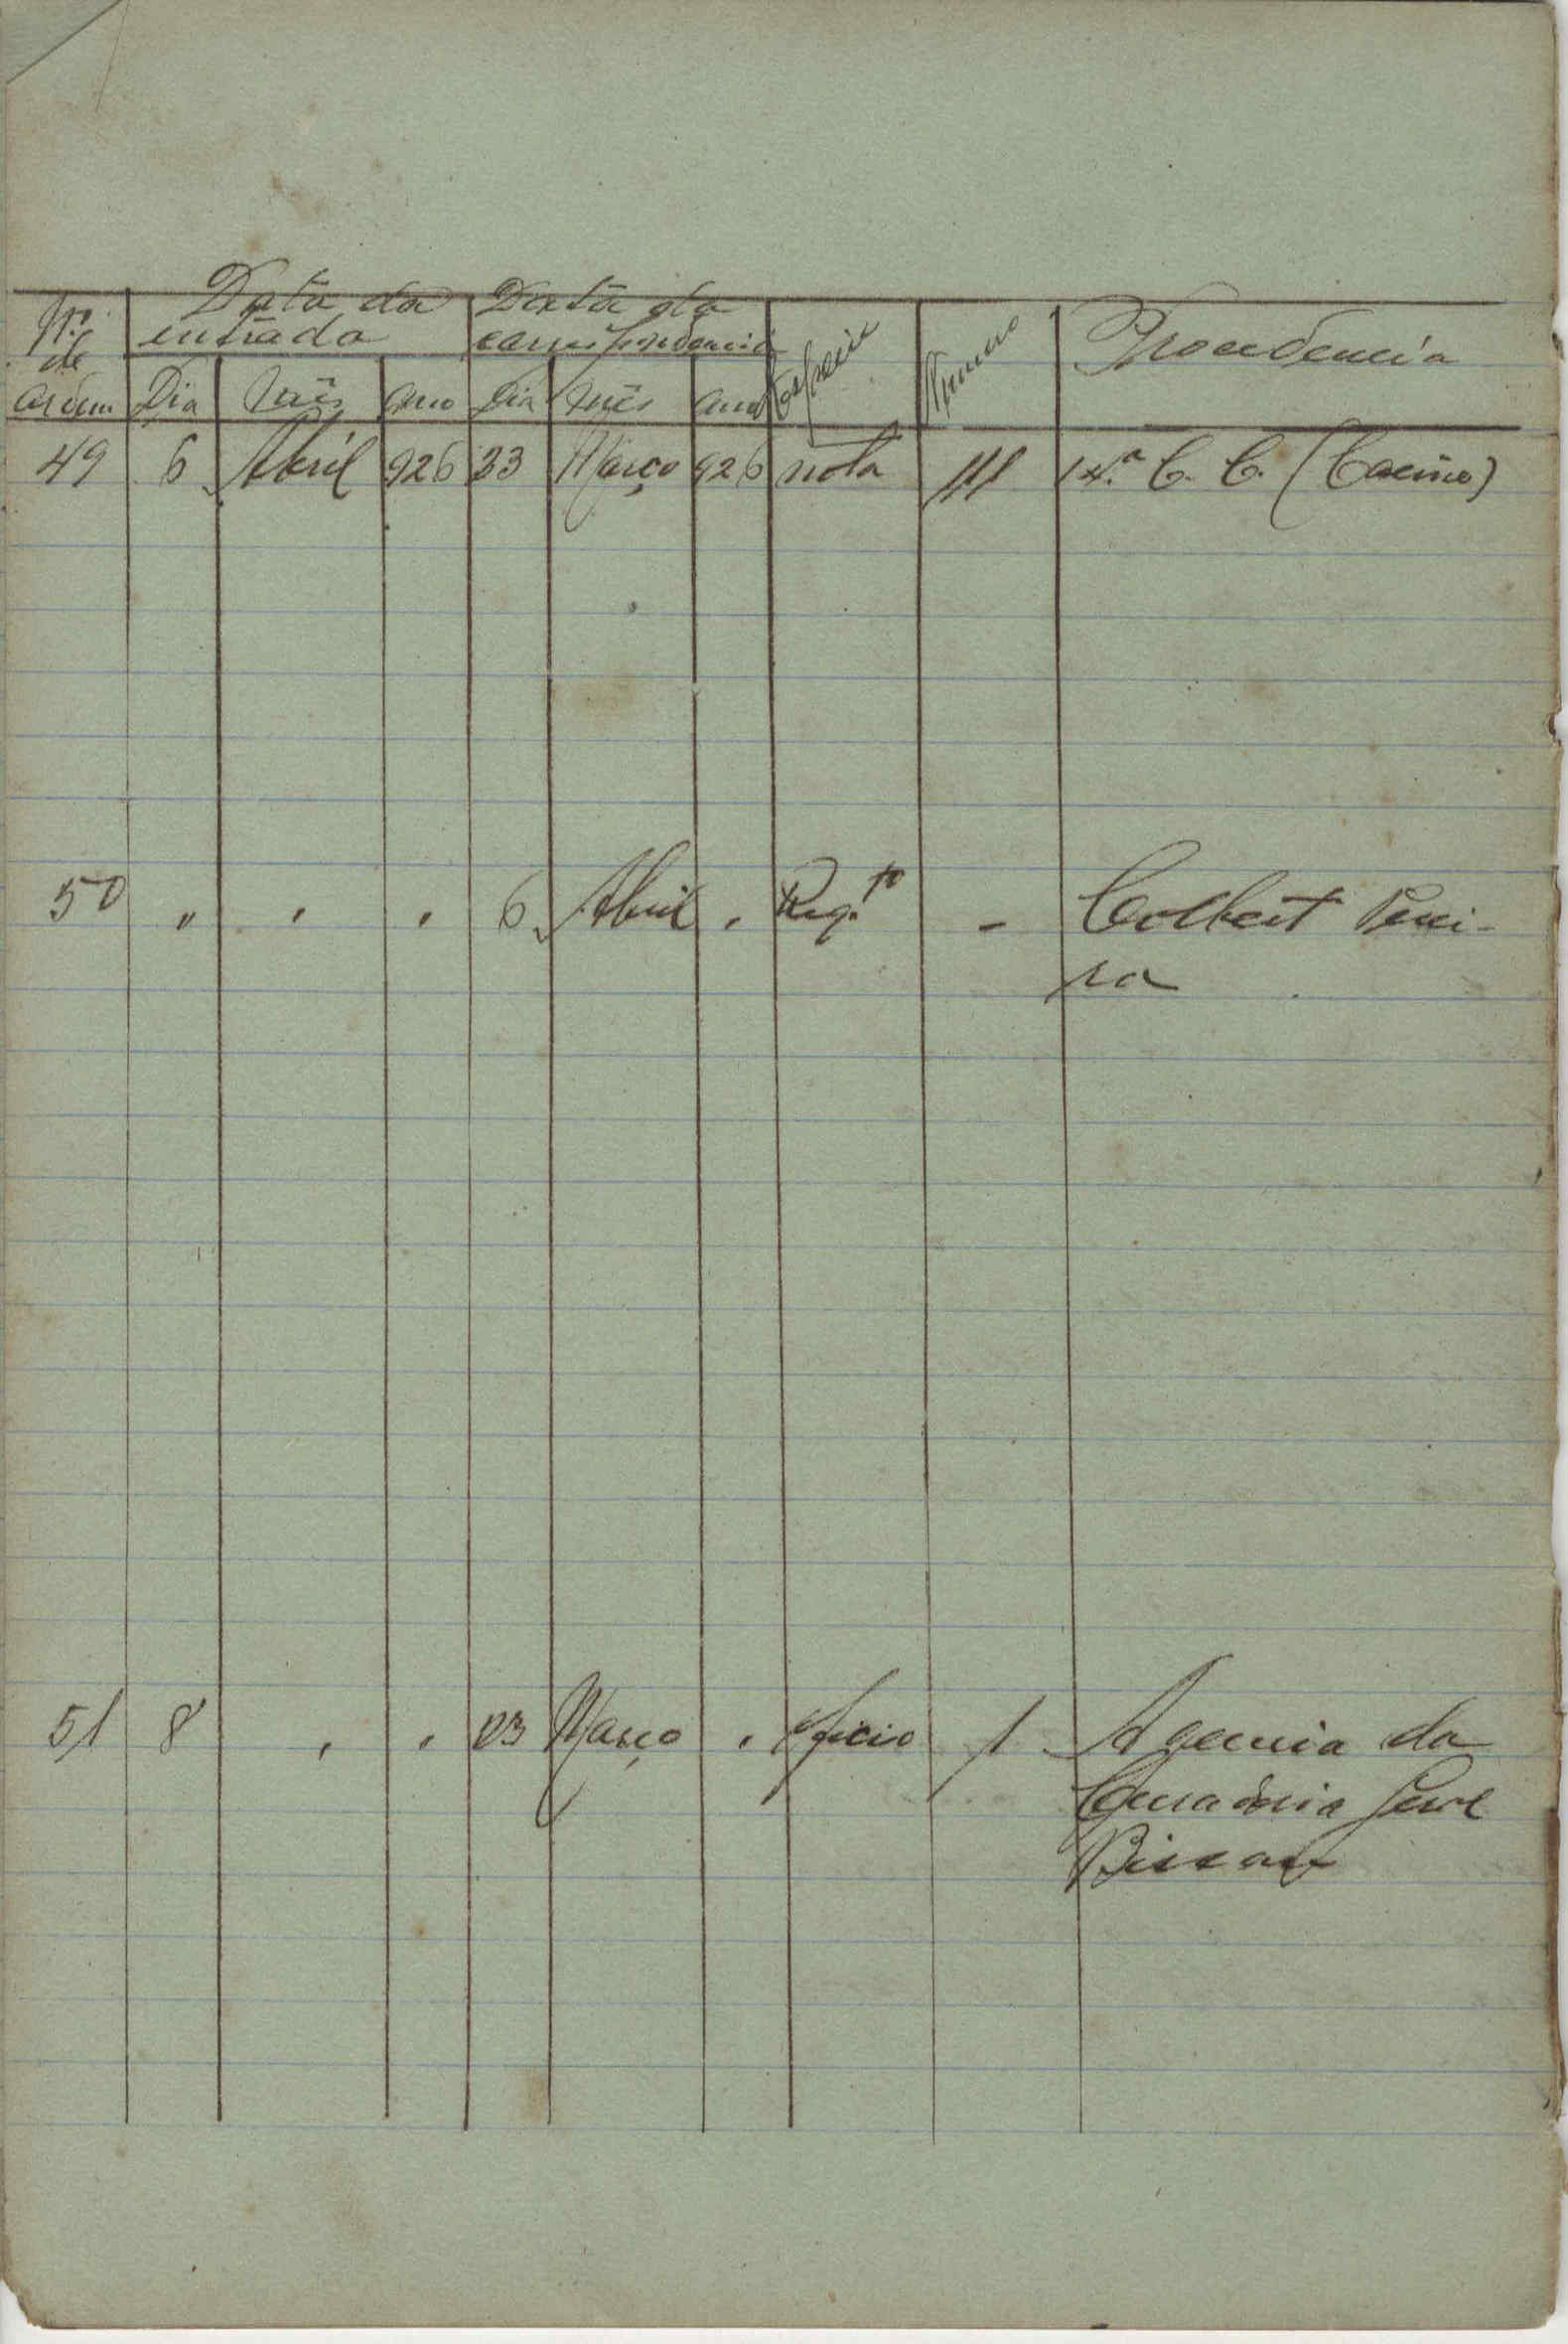 Nº de ordem | Data da entrada | Data da correspondencia | Especie | Numero | Procedencia
Dia | Mês | Ano | Dia | Mês | Ano
49 | 6 | Abril | 926 | 23 | Março | 926 | nota | 111 | 4.ª C. C. (Cacine)
50 | " | " | " | 6 | Abril | " | Req.to | - | Colbert Perei-
ra
51 | 8 | " | " | 23 | Março | " | Oficio | 1 | Agencia da
Curadoria Geral
Bissau